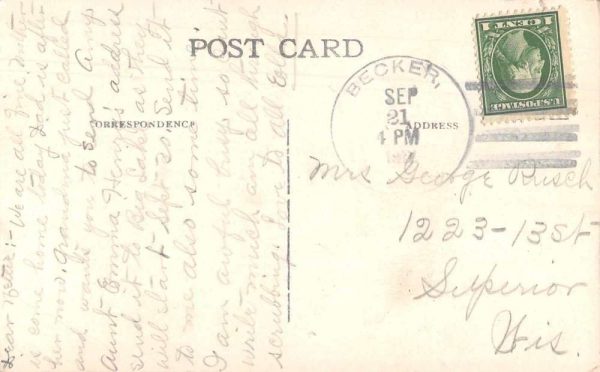 POST CARD
CORRESPONDENCE
ADDRESS
BECKER,
SEP
21
4 PM
U.S. POSTAGE
1 CENT 1
Mrs George Rusch
1223-13 St
Superior
Wis.
Dear :- We are all fine. Mother
is come home today Dad is after
her now. Grandma just called
and wants you to send Amy
Aunt Emma Henry's address
send it to Big Lake as they
will start Sept 30. Send it
to me also some time.
I am awful busy so can't
write much am all through
scrubbing. Love to all